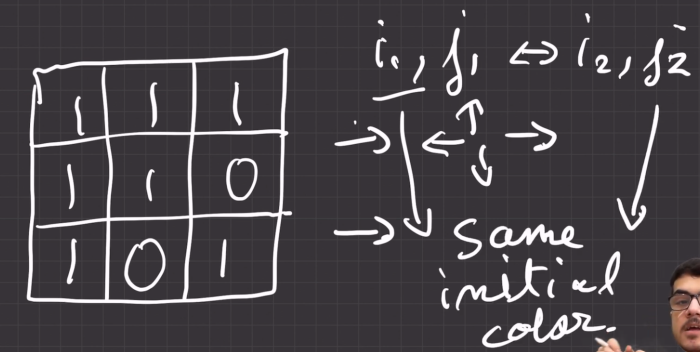 1 1 1
1 1 0
1 0 1
i1, j1 ↔ i2, j2
→ ← ↑ ↓ →
→ Same
initial
color.